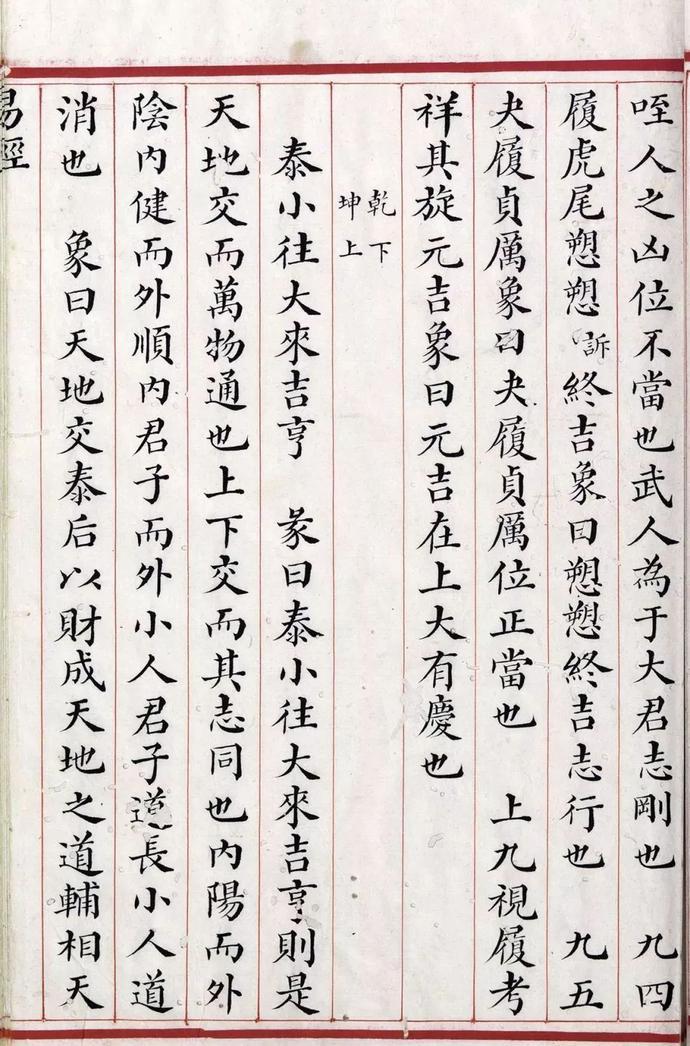 咥人之凶位不當也武人為于大君志剛也　九四
履虎尾愬愬訴終吉象曰愬愬終吉志行也　九五
夬履貞厲象曰夬履貞厲位正當也　上九視履考
祥其旋元吉象曰元吉在上大有慶也
乾下
坤上
泰小往大來吉亨　彖曰泰小往大來吉亨則是
天地交而萬物通也上下交而其志同也内陽而外
陰内健而外順内君子而外小人君子道長小人道
消也　象曰天地交泰后以財成天地之道輔相天
易經